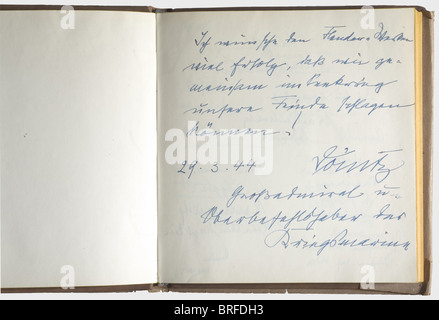 Ich wünsche den Flender-Werken
viel Erfolg, daß wir ge-
meinsam im Seekrieg
unsere Feinde schlagen
können.
29.3.44 Dönitz
Großadmiral u.
Oberbefehlshaber der
Kriegsmarine
alamy
Image ID: BRFDH3
www.alamy.com